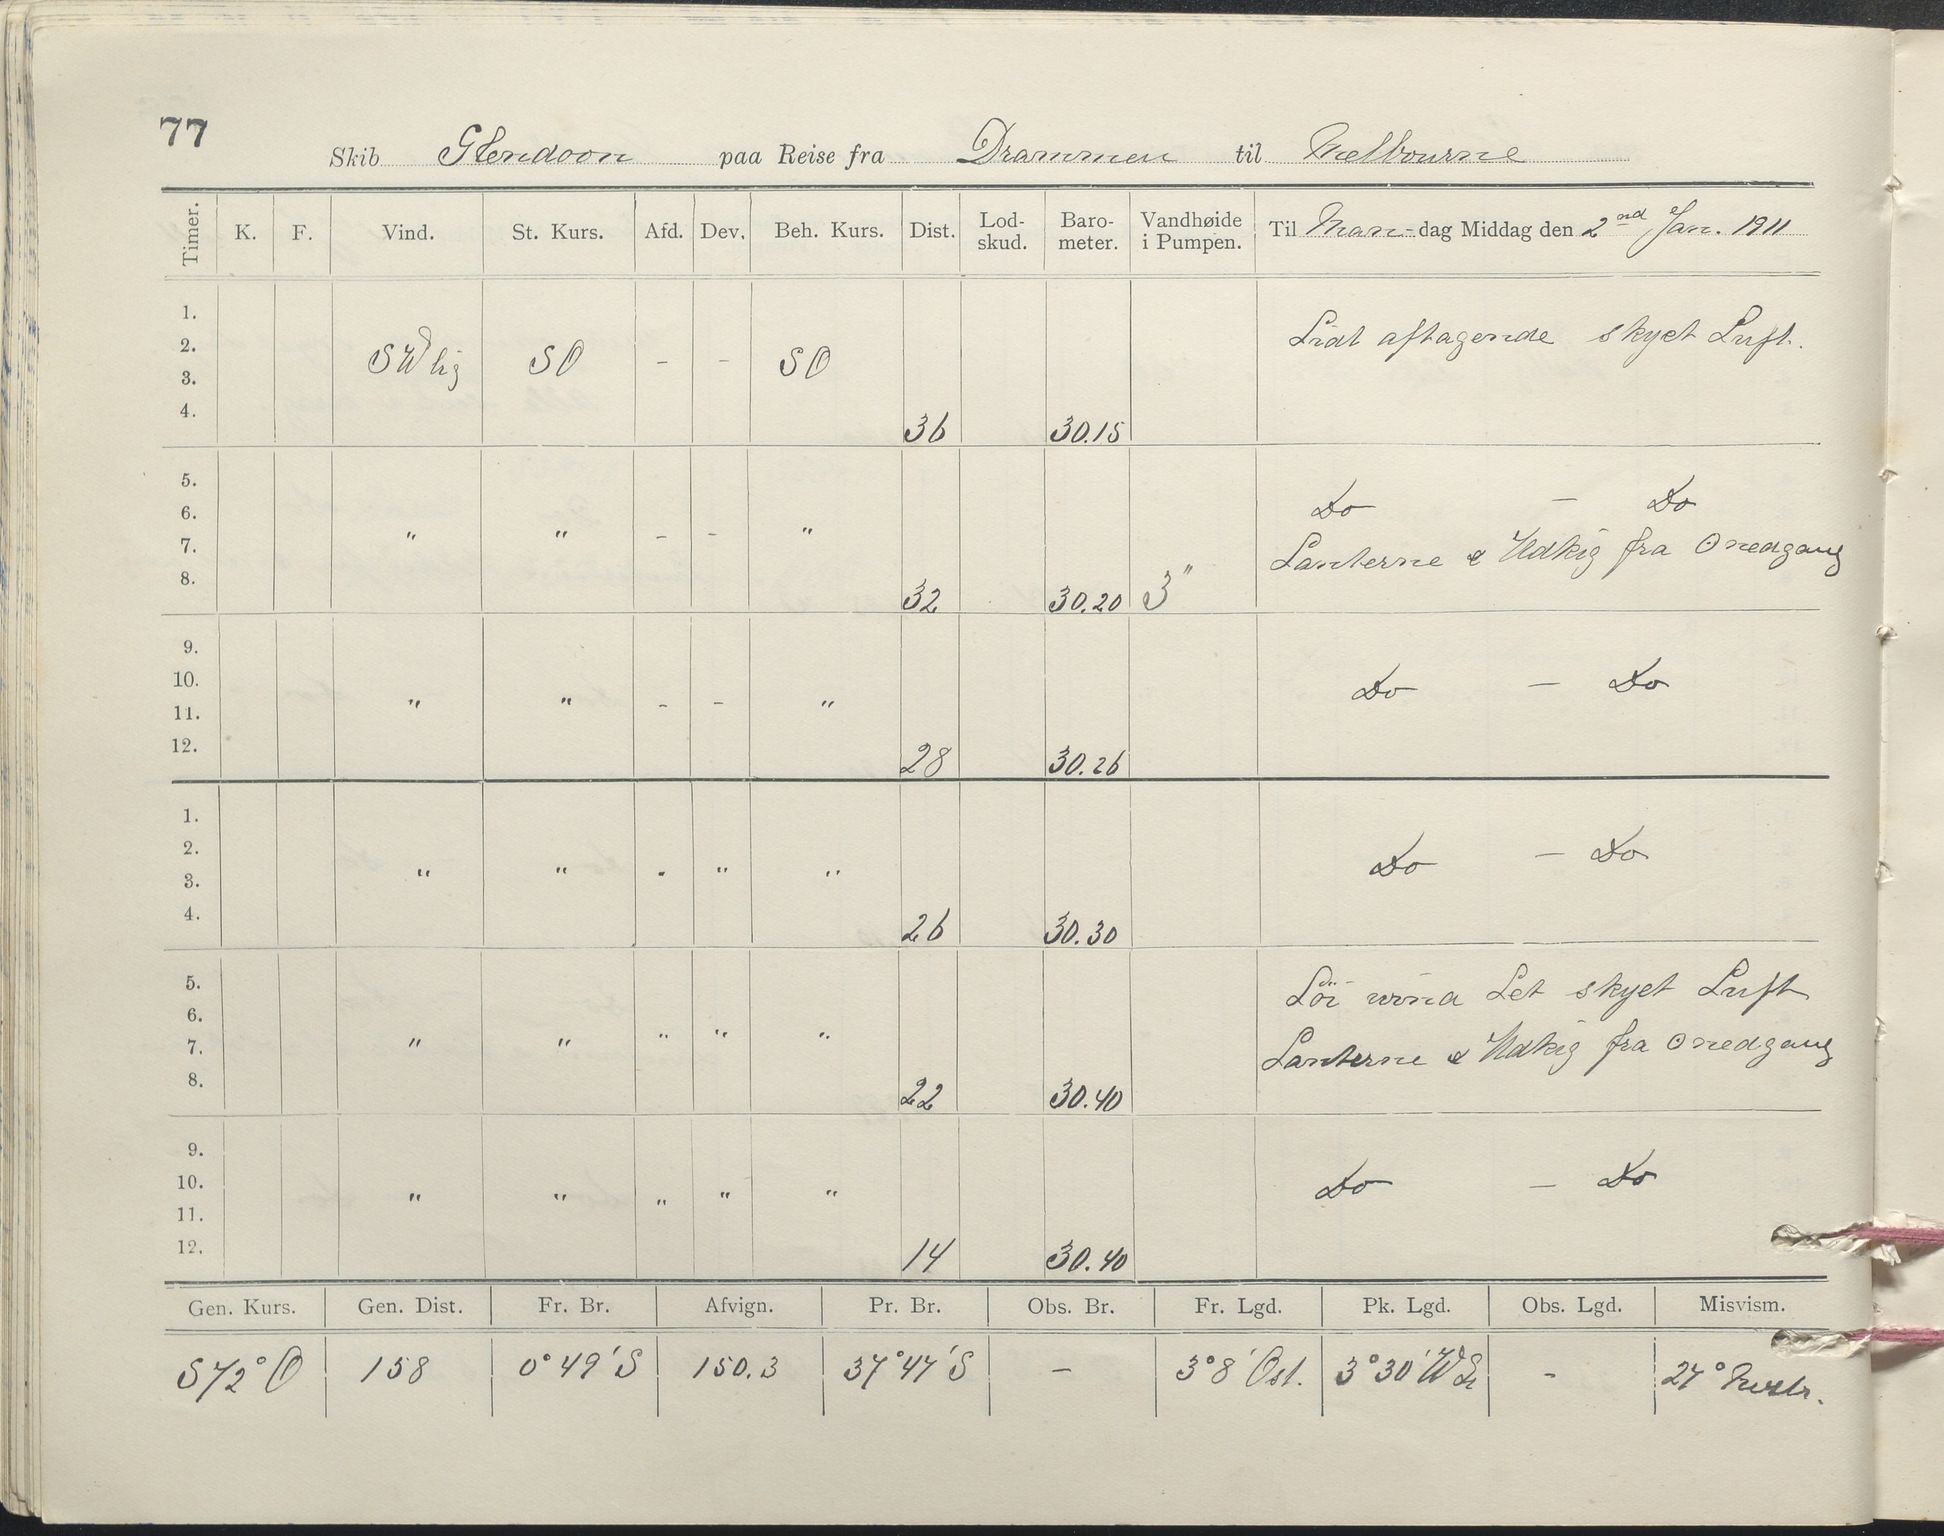 77
Skib Glendoon paa Reise fra Drammen til Melbourne
Timer. K. F. Vind. St. Kurs. Afd. Dev. Beh. Kurs. Dist. Lod-skud. Baro-meter. Vandhøide i Pumpen. Til Man-dag Middag den 2nd Jan. 1911
1.
2. Lidt aftagende skyet Luft.
3. SWlig SO - - SO
4. 36 30.15
5.
6. Do — Do
7. " " - - " Lanterne & Udkig fra ʘnedgang
8. 32 30.20 3"
9.
10. Do — Do
11. " " - - "
12. 28 30.26
1.
2. Do — Do
3. " " " " "
4. 26 30.30
5. Löi vind Let skyet Luft
6.
7. " " " " " Lanterne & Udkig fra ʘnedgang
8. 22 30.40
9.
10. " " " " " Do — Do
11.
12. 14 30.40
Gen. Kurs. Gen. Dist. Fr. Br. Afvign. Pr. Br. Obs. Br. Fr. Lgd. Pk. Lgd. Obs. Lgd. Misvism.
S72°O 158 0°49'S 150.3 37°47'S — 3°8'Ost. 3°30'W - 27°